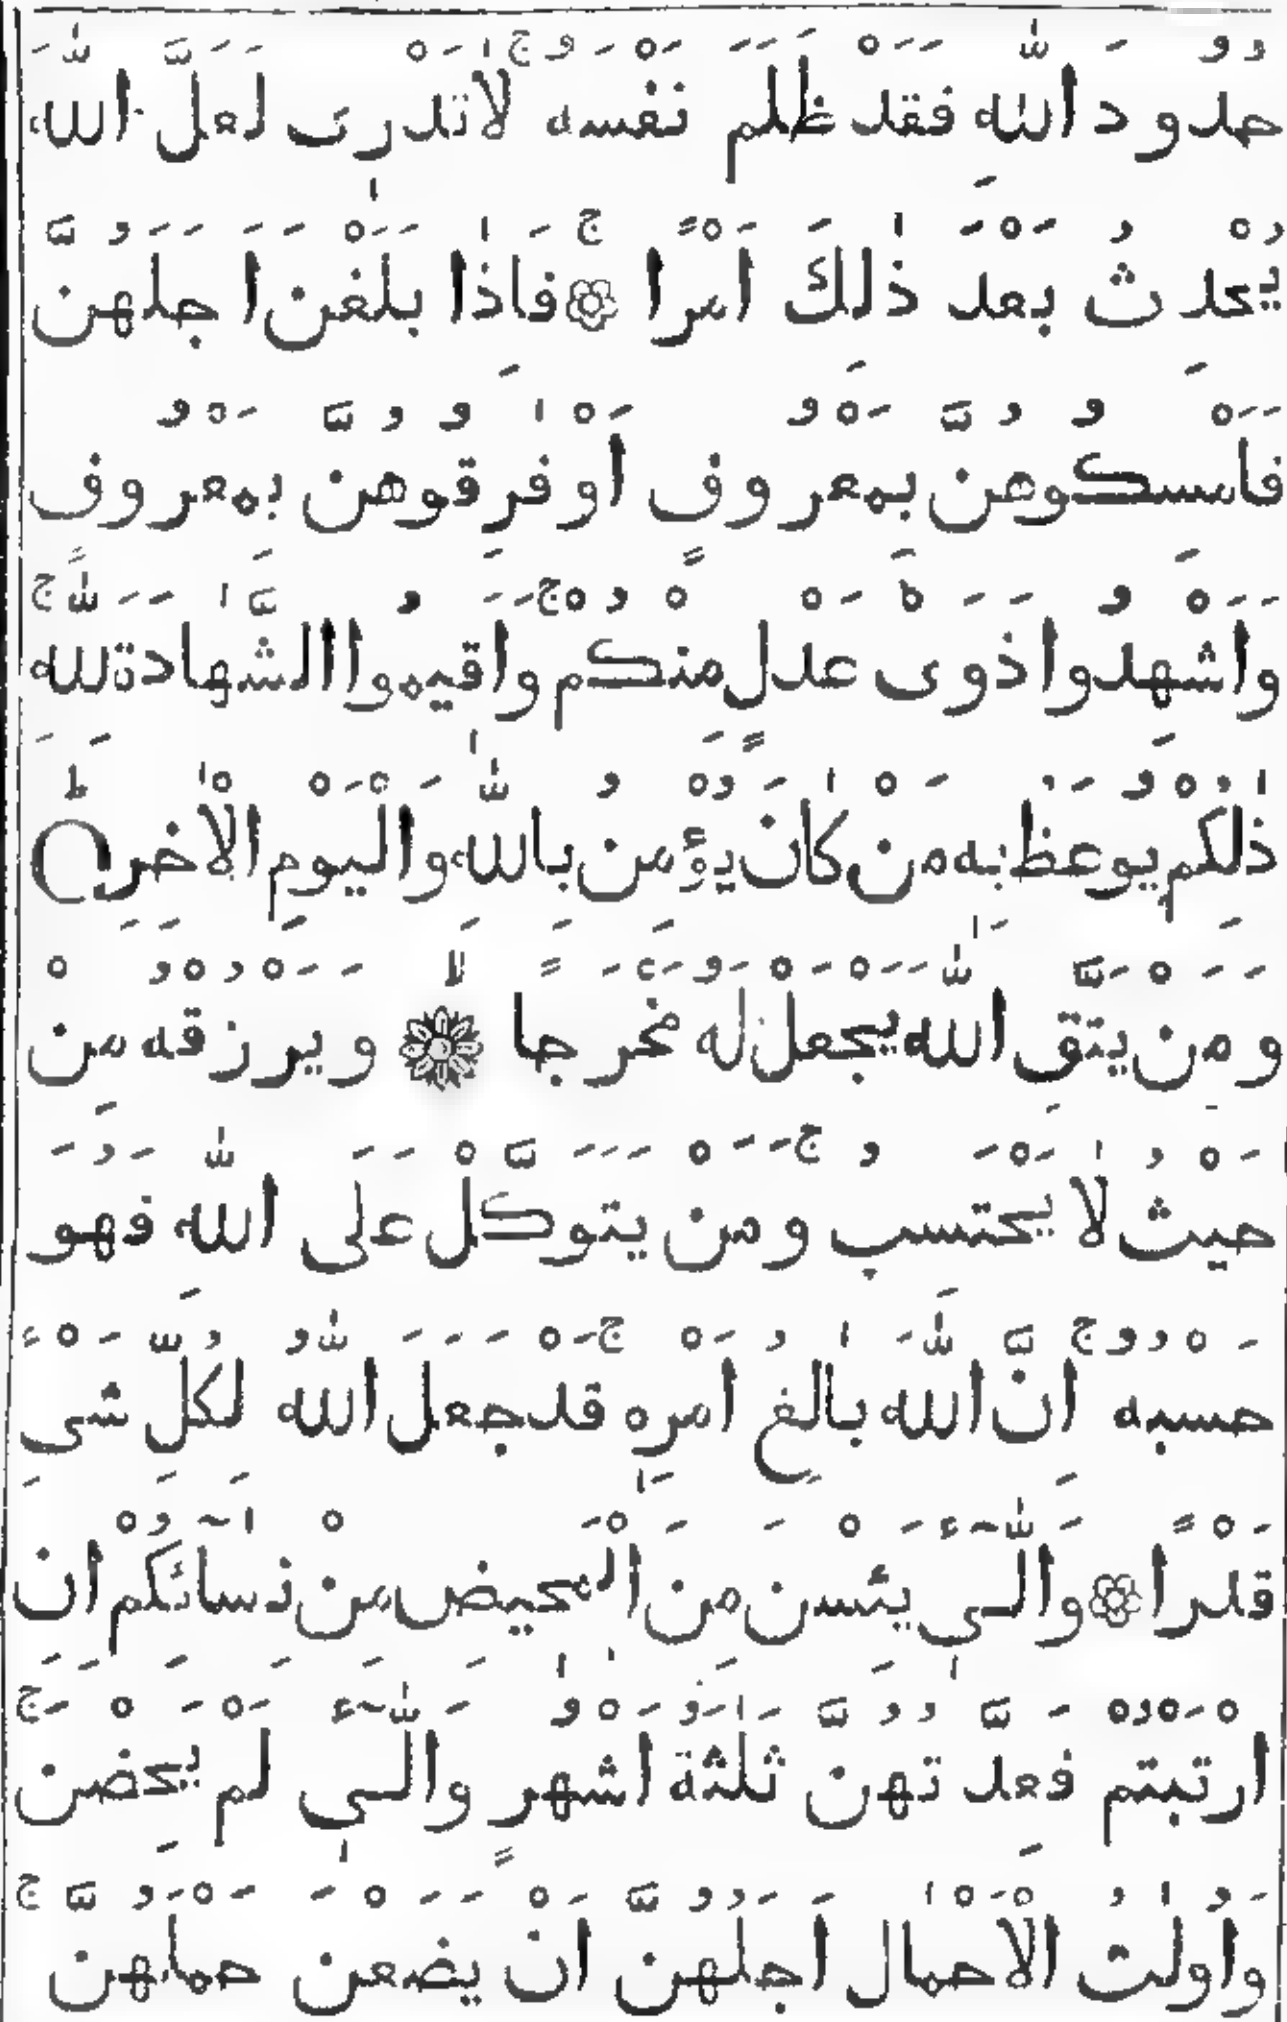 حُدُوْدَ اللّٰهِ فَقَدْ ظَلَمَ نَفْسَهٗ ؕ لَا تَدْرِىْ لَعَلَّ اللّٰهَ
يُحْدِثُ بَعْدَ ذٰلِكَ اَمْرًا ۞ فَاِذَا بَلَغْنَ اَجَلَهُنَّ
فَاَمْسِكُوْهُنَّ بِمَعْرُوْفٍ اَوْ فَارِقُوْهُنَّ بِمَعْرُوْفٍ
وَاَشْهِدُوْا ذَوَىْ عَدْلٍ مِّنْكُمْ وَاَقِيْمُوا الشَّهَادَةَ لِلّٰهِ ۚ
ذٰلِكُمْ يُوْعَظُ بِهٖ مَنْ كَانَ يُؤْمِنُ بِاللّٰهِ وَالْيَوْمِ الْاٰخِرِ ؕ
وَمَنْ يَّتَّقِ اللّٰهَ يَجْعَلْ لَّهٗ مَخْرَجًا ۙ وَيَرْزُقْهُ مِنْ
حَيْثُ لَا يَحْتَسِبُ ۚ وَمَنْ يَّتَوَكَّلْ عَلَى اللّٰهِ فَهُوَ
حَسْبُهٗ ۚ اِنَّ اللّٰهَ بَالِغُ اَمْرِهٖ ۚ قَدْ جَعَلَ اللّٰهُ لِكُلِّ شَىْءٍ
قَدْرًا ۞ وَالّٰٓـىِٔ يَئِسْنَ مِنَ الْمَحِيْضِ مِنْ نِّسَآئِكُمْ اِنِ
ارْتَبْتُمْ فَعِدَّتُهُنَّ ثَلٰثَةُ اَشْهُرٍ وَّالّٰٓـىِٔ لَمْ يَحِضْنَ ۚ
وَاُولَاتُ الْاَحْمَالِ اَجَلُهُنَّ اَنْ يَّضَعْنَ حَمْلَهُنَّ ۚ